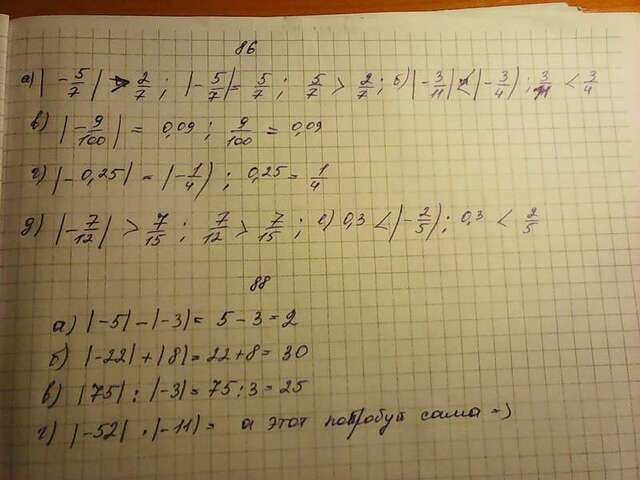 86
а) |-5/7| > 2/7; |-5/7| = 5/7; 5/7 > 2/7; б) |-3/11| < |-3/4); 3/11 < 3/4
в) |-9/100| = 0,09; 9/100 = 0,09
г) |-0,25| = |-1/4); 0,25 = 1/4
д) |-7/12| > 7/15; 7/12 > 7/15; е) 0,3 < |-2/5); 0,3 < 2/5
88
а) |-5| - |-3| = 5 - 3 = 2
б) |-22| + |8| = 22 + 8 = 30
в) |75| : |-3| = 75 : 3 = 25
г) |-52| · |-11| = а этот попробуй сама =)